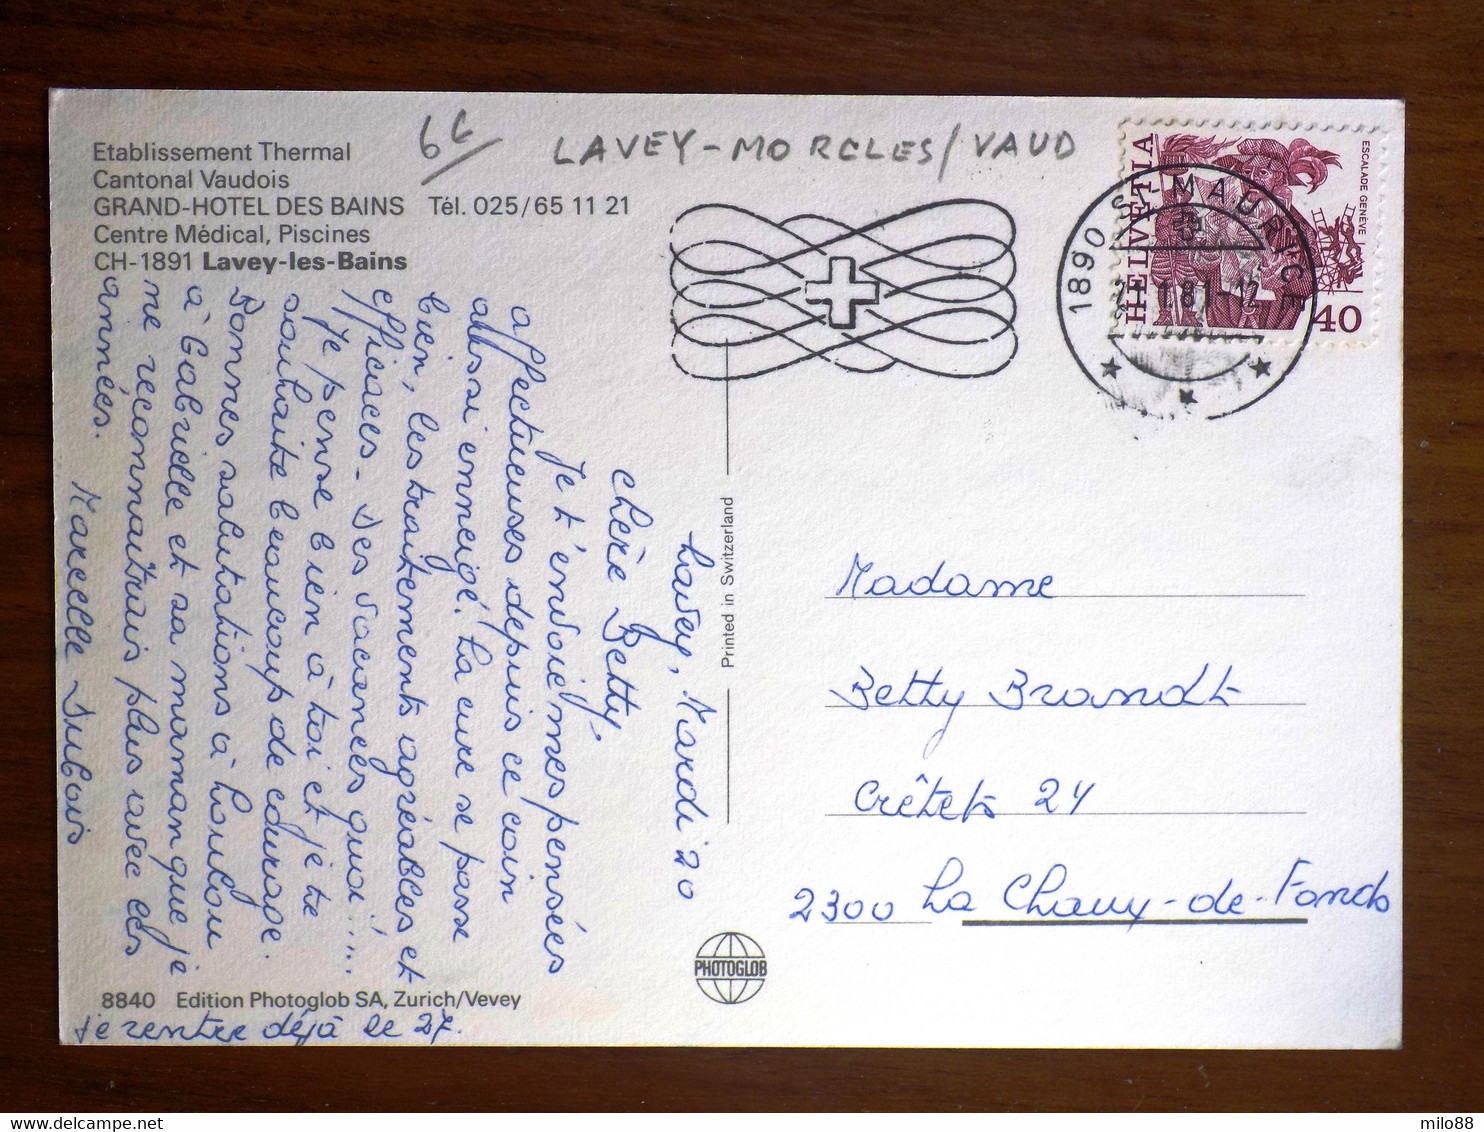 Etablissement Thermal
Cantonal Vaudois
GRAND-HOTEL DES BAINS Tél. 025/65 11 21
Centre Médical, Piscines
CH-1891 Lavey-les-Bains
LAVEY-MORCLES/VAUD
HELVETIA
ESCALADE GENÈVE
40
1890 ST-MAURICE
1.81-12
Lavey, Mardi 20
Chère Betty,
Je t'envoie mes pensées
affectueuses depuis ce coin
aussi enneigé. La cure se passe
bien, les traitements agréables et
efficaces. Des vacances quoi....
Je pense bien à toi et je te
souhaite beaucoup de courage.
Bonnes salutations à Loulou
à Gabrielle et sa maman que je
ne reconnaîtrais plus avec ces
années.
Marcelle Dubois
je rentre déjà le 27.
Printed in Switzerland
Madame
Betty Brandt
Crêtets 24
2300 La Chaux-de-Fonds
PHOTOGLOB
8840 Edition Photoglob SA, Zurich/Vevey
milo88